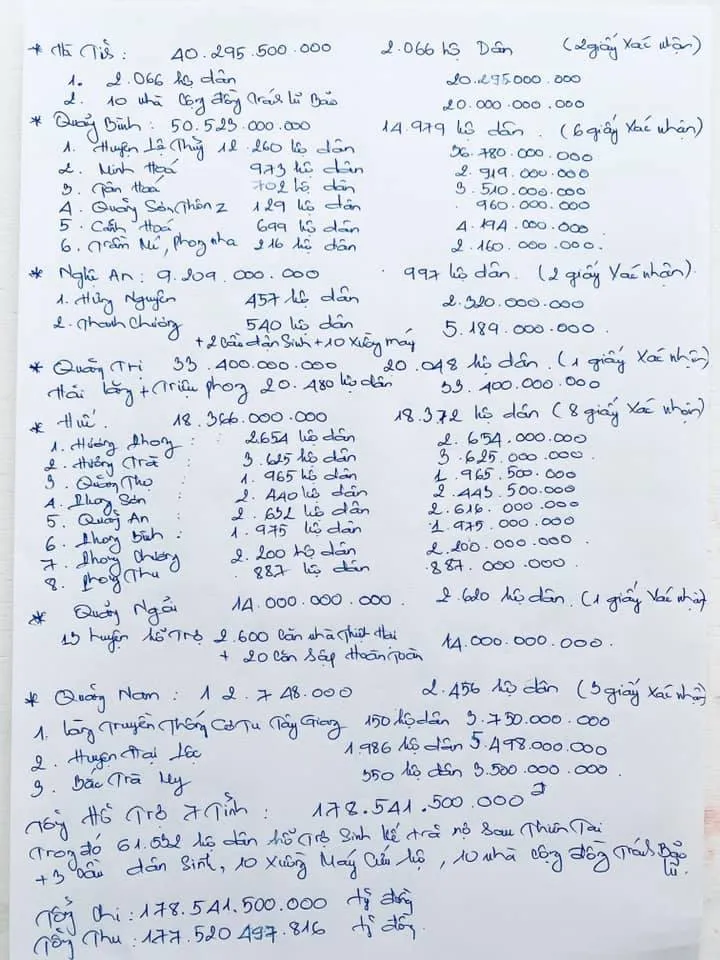 * Hà Tĩnh : 40.295.500.000 2.066 hộ Dân (2 giấy xác nhận)
1. 2.066 hộ dân 20.295.000.000
2. 10 nhà cộng đồng tránh lũ Bão 20.000.000.000
* Quảng Bình : 50.523.000.000 14.979 hộ dân . (6 giấy xác nhận)
1. Huyện Lệ Thủy 12.260 hộ dân 36.780.000.000
2. Minh Hoá 973 hộ dân 2.919.000.000
3. Tân Hoá 702 hộ dân 3.510.000.000
4. Quảng Sơn, Thôn 2 129 hộ dân 960.000.000
5. Cảnh Hoá 699 hộ dân 4.194.000.000
6. Trầm Mé, Phong nha 216 hộ dân 2.160.000.000.
* Nghệ An : 9.209.000.000 997 hộ dân. (2 giấy xác nhận).
1. Hưng Nguyên 457 hộ dân 2.320.000.000
2. Thanh Chương 540 hộ dân 5.189.000.000.
+ 2 cầu dân sinh + 10 xuồng máy
* Quảng Trị 33.400.000.000 20.048 hộ dân. (1 giấy xác nhận)
Hải Lăng + Triệu phong 20.480 hộ dân 33.400.000.000
* Huế. 18.366.000.000 18.372 hộ dân (8 giấy xác nhận)
1. Hương Phong : 2.654 hộ dân 2.654.000.000
2. Hương Trà : 3.625 hộ dân 3.625.000.000.
3. Quảng Thọ 1.965 hộ dân 1.965.500.000
4. Phong Sơn : 2.440 hộ dân 2.443.500.000
5. Quảng An : 2.632 hộ dân 2.616.000.000
6. Phong Bình : 1.975 hộ dân 1.975.000.000
7. Phong Chương 2.200 hộ dân 2.200.000.000.
8. Phong Thu 887 hộ dân 887.000.000.
* Quảng Ngãi 14.000.000.000. 2.620 hộ dân. (1 giấy xác nhận)
13 huyện hỗ trợ 2.600 căn nhà thiệt hại 14.000.000.000.
+ 20 căn sập hoàn toàn
* Quảng Nam : 12.748.000 2.456 hộ dân (3 giấy xác nhận)
1. Làng Truyền Thống Cơ Tu Tây Giang 150 hộ dân 3.750.000.000
2. Huyện Đại Lộc 1.986 hộ dân 5.498.000.000
3. Bắc Trà My 350 hộ dân 3.500.000.000.
Tổng Hỗ Trợ 7 Tỉnh : 178.541.500.000
Trong đó 61.532 hộ dân hỗ trợ sinh kế trả nợ sau thiên tai
+ 3 cầu dân sinh, 10 xuồng Máy Cứu hộ, 10 nhà cộng đồng tránh Bão lũ.
Tổng Chi : 178.541.500.000 tỷ đồng
Tổng Thu : 177.520.497.816 tỷ đồng.